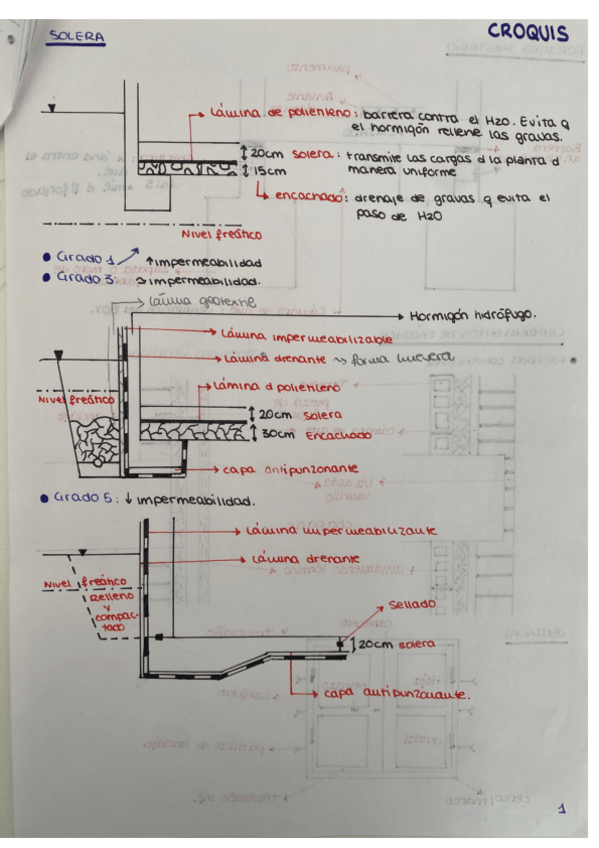 SOLERA
CROQUIS
Lámina de polienleno: barrera contra el H2O. Evita q
el hormigón rellene las gravas.
20cm solera: transmite las cargas d la planta d
manera uniforme
15cm
encachado: drenaje de gravas q evita el
paso de H2O
Nivel freático
Grado 1 ↑ impermeabilidad
Grado 3: impermeabilidad.
Lámina geotextil
Hormigón hidrófugo.
Lámina impermeabilizable
Lámina drenante forma huevera
Lámina d polienleno
Nivel freático
20cm solera
30cm Encachado
capa antipunzonante
Grado 5: ↓ impermeabilidad.
Lámina impermeabilizante
Lámina drenante
Nivel freático
Relleno
y
compac-
tado
Sellado
20cm solera
capa antipunzonante.
1